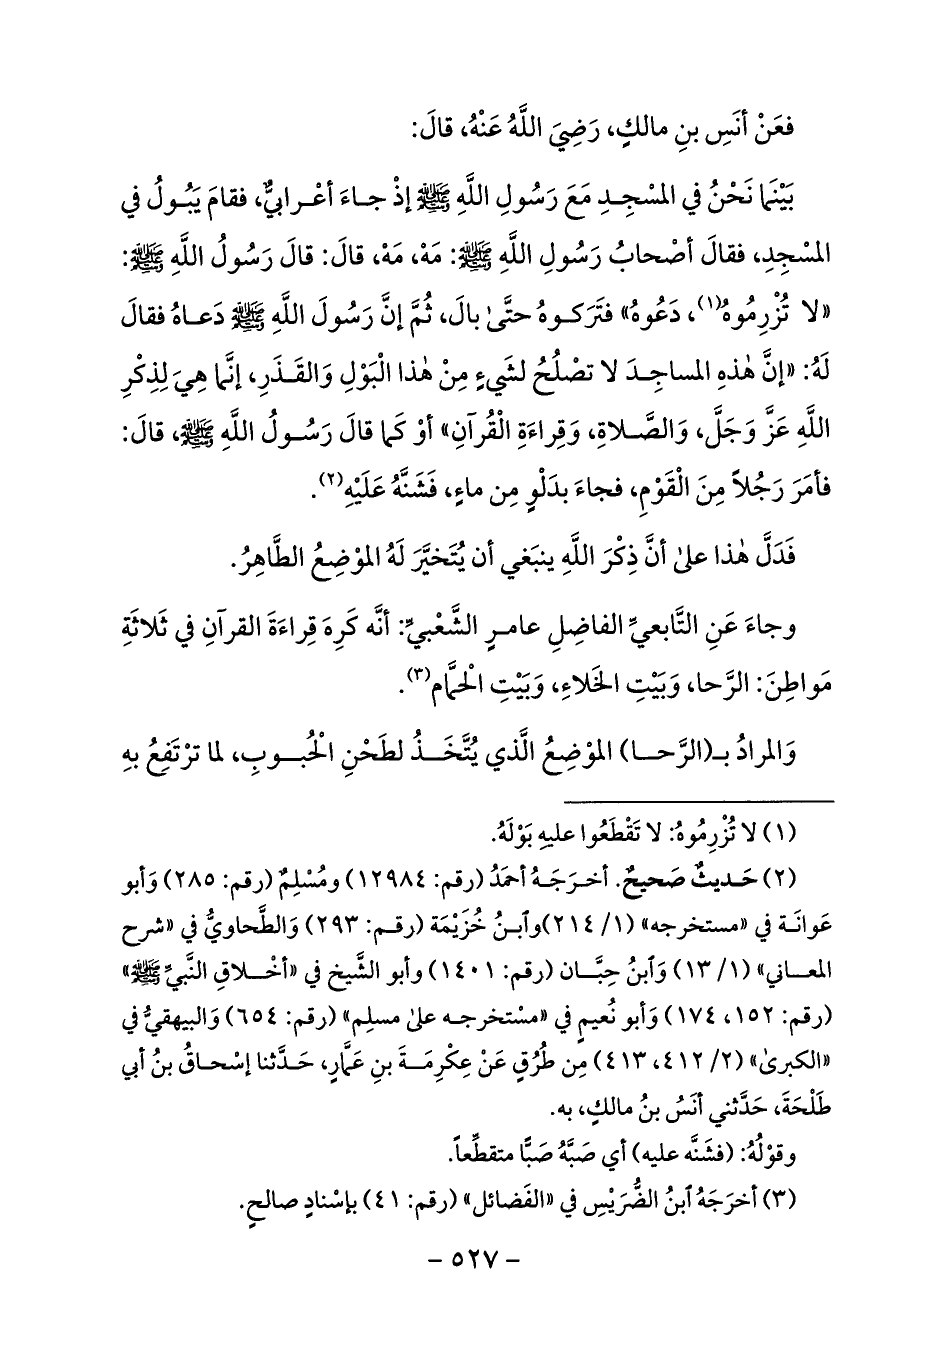 فعَنْ أنَسِ بنِ مالكٍ، رَضِيَ اللَّهُ عَنْهُ، قالَ:
بَيْنَما نَحْنُ في المسْجِدِ مَعَ رَسُولِ اللَّهِ ﷺ إذْ جاءَ أعْرابيٌّ، فقامَ يَبُولُ في
المسْجِدِ، فقالَ أصْحابُ رَسُولِ اللَّهِ ﷺ: مَهْ، مَهْ، قالَ: قالَ رَسُولُ اللَّهِ ﷺ:
«لا تُزْرِمُوهُ(١)، دَعُوهُ» فتَركوهُ حتَّىٰ بالَ، ثُمَّ إنَّ رَسُولَ اللَّهِ ﷺ دَعاهُ فقالَ
لَهُ: «إنَّ هٰذهِ المساجِدَ لا تصْلُحُ لشَيءٍ مِنْ هٰذا الْبَوْلِ وَالقَذَرِ، إنَّما هِيَ لِذِكْرِ
اللَّهِ عَزَّ وَجَلَّ، وَالصَّلاةِ، وَقِراءَةِ الْقُرآنِ» أوْ كَما قالَ رَسُولُ اللَّهِ ﷺ، قالَ:
فأمَرَ رَجُلاً مِنَ الْقَوْمِ، فجاءَ بدَلْوٍ مِن ماءٍ، فَشَنَّهُ عَلَيْهِ(٢).
فَدَلَّ هٰذا علىٰ أنَّ ذِكْرَ اللَّهِ ينبَغي أن يُتَخيَّرَ لَهُ الموْضِعُ الطَّاهِرُ.
وجاءَ عَنِ التَّابعيِّ الفاضِلِ عامرٍ الشَّعْبيِّ: أنَّه كَرِهَ قِراءَةَ القرآنِ في ثَلاثَةِ
مَواطِنَ: الرَّحا، وَبَيْتِ الخَلاءِ، وَبَيْتِ الْحمَّام(٣).
وَالمرادُ بـ(الرَّحا) الموْضِعُ الَّذي يُتَّخَذُ لطَحْنِ الْحُبوبِ، لما ترْتَفِعُ بهِ
(١) لا تُزْرِمُوهُ: لا تَقْطَعُوا عليهِ بَوْلَهُ.
(٢) حَديثٌ صَحيحٌ. أخرَجَهُ أحمَدُ (رقم: ١٢٩٨٤) ومُسْلِمٌ (رقم: ٢٨٥) وَأبو
عَوانَة في «مستخرجه» (١/ ٢١٤)وٱبنُ خُزَيْمَة (رقم: ٢٩٣) وَالطَّحاويُّ في «شرح
المعاني» (١/ ١٣) وَٱبنُ حِبَّان (رقم: ١٤٠١) وأبو الشَّيخ في «أخْلاق النَّبيِّ ﷺ»
(رقم: ١٥٢، ١٧٤) وَأبو نُعيمٍ في «مسْتخرجه علىٰ مسلِم» (رقم: ٦٥٤) وَالبيهقيُّ في
«الكبرىٰ» (٢/ ٤١٢، ٤١٣) مِن طُرُقٍ عَنْ عِكْرِمَةَ بنِ عَمَّارٍ، حَدَّثنا إسْحاقُ بنُ أبي
طَلْحَةَ، حَدَّثني أنَسُ بنُ مالكٍ، به.
وقوْلُهُ: (فشَنَّه عليه) أي صَبَّهُ صَبًّا متقطِّعاً.
(٣) أخرَجَهُ ٱبنُ الضُّرَيْسِ في «الفَضائل» (رقم: ٤١) بإسْنادٍ صالحٍ.
- ٥٢٧ -